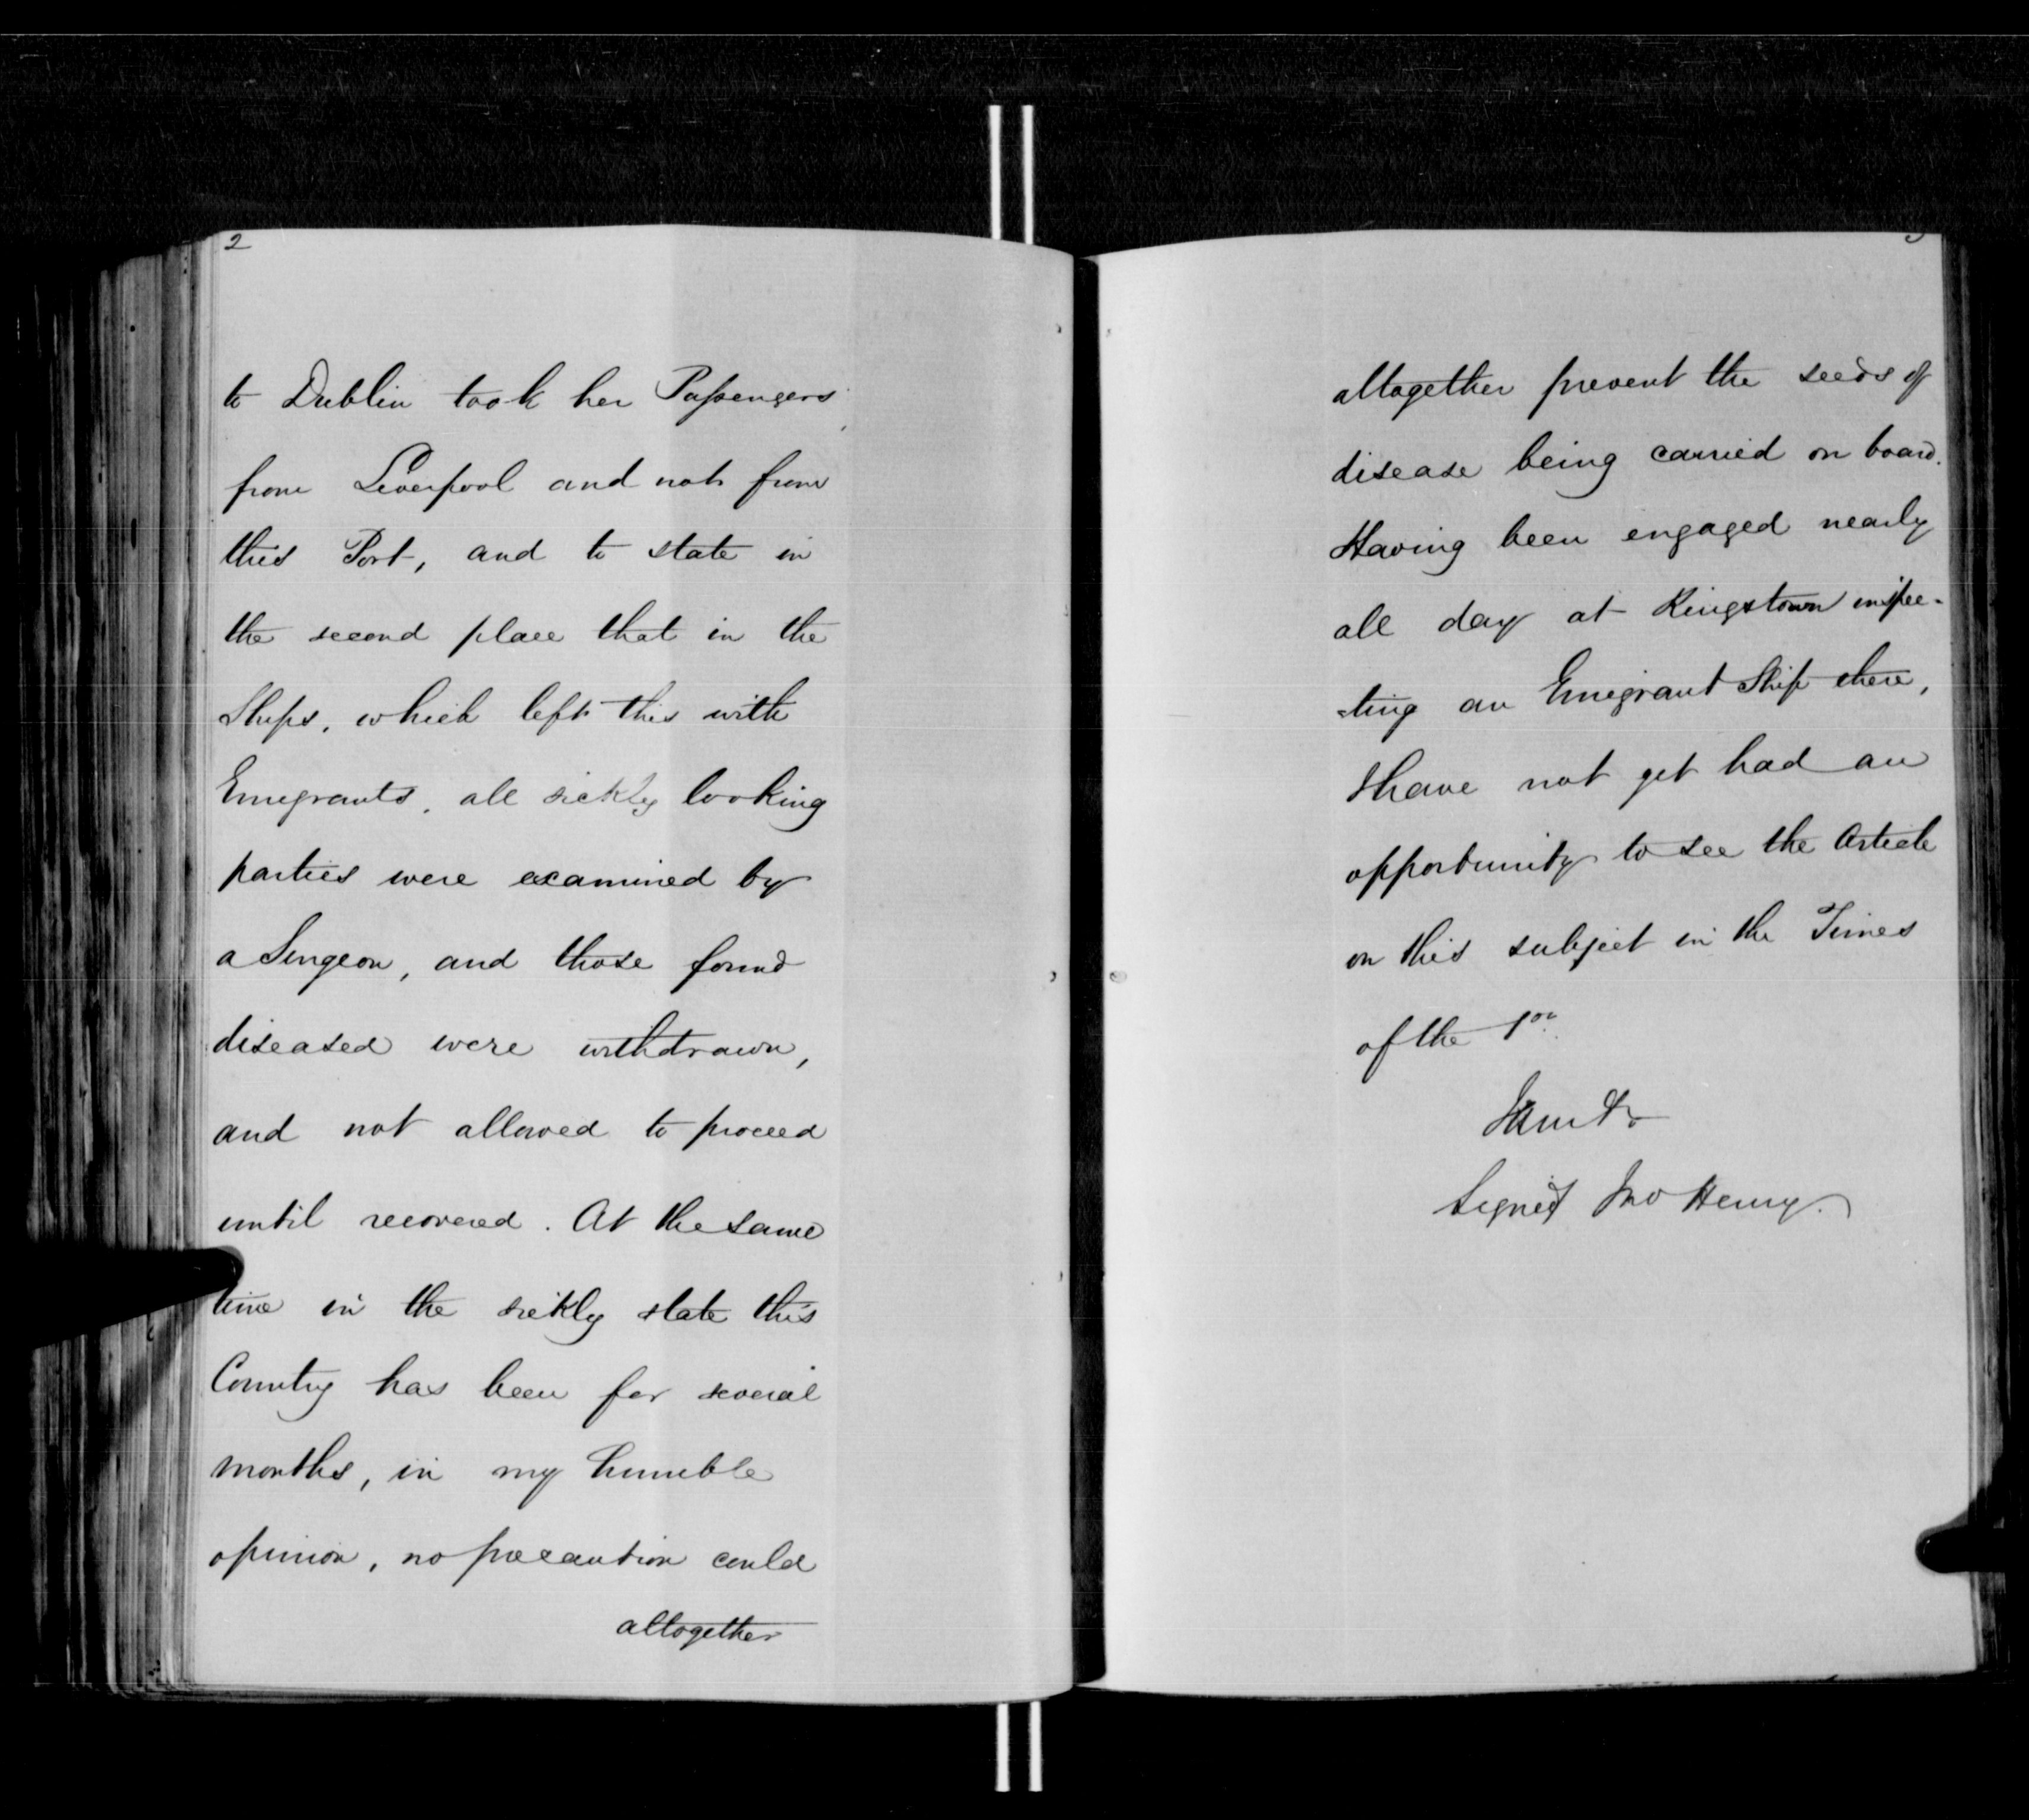 2
to Dublin took her Passengers
from Liverpool and not from
this Port, and to state in
the second place that in the
Ships, which left this with
Emegrants, all sickly looking
parties were examined by
a Surgeon, and those found
diseased were withdrawn,
and not allowed to proceed
until recovered. At the same
time in the sickly state this
Country has been for several
months, in my humble
opinion, no precaution could
altogether
altogether prevent the seeds of
disease being carried on board.
Having been engaged nearly
all day at Kingstown inspec-
-ting an Emigrant Ship there,
I have not yet had an
opportunity to see the Article
on this subject in the Times
of the
I am &c
Signed Jno Henry.